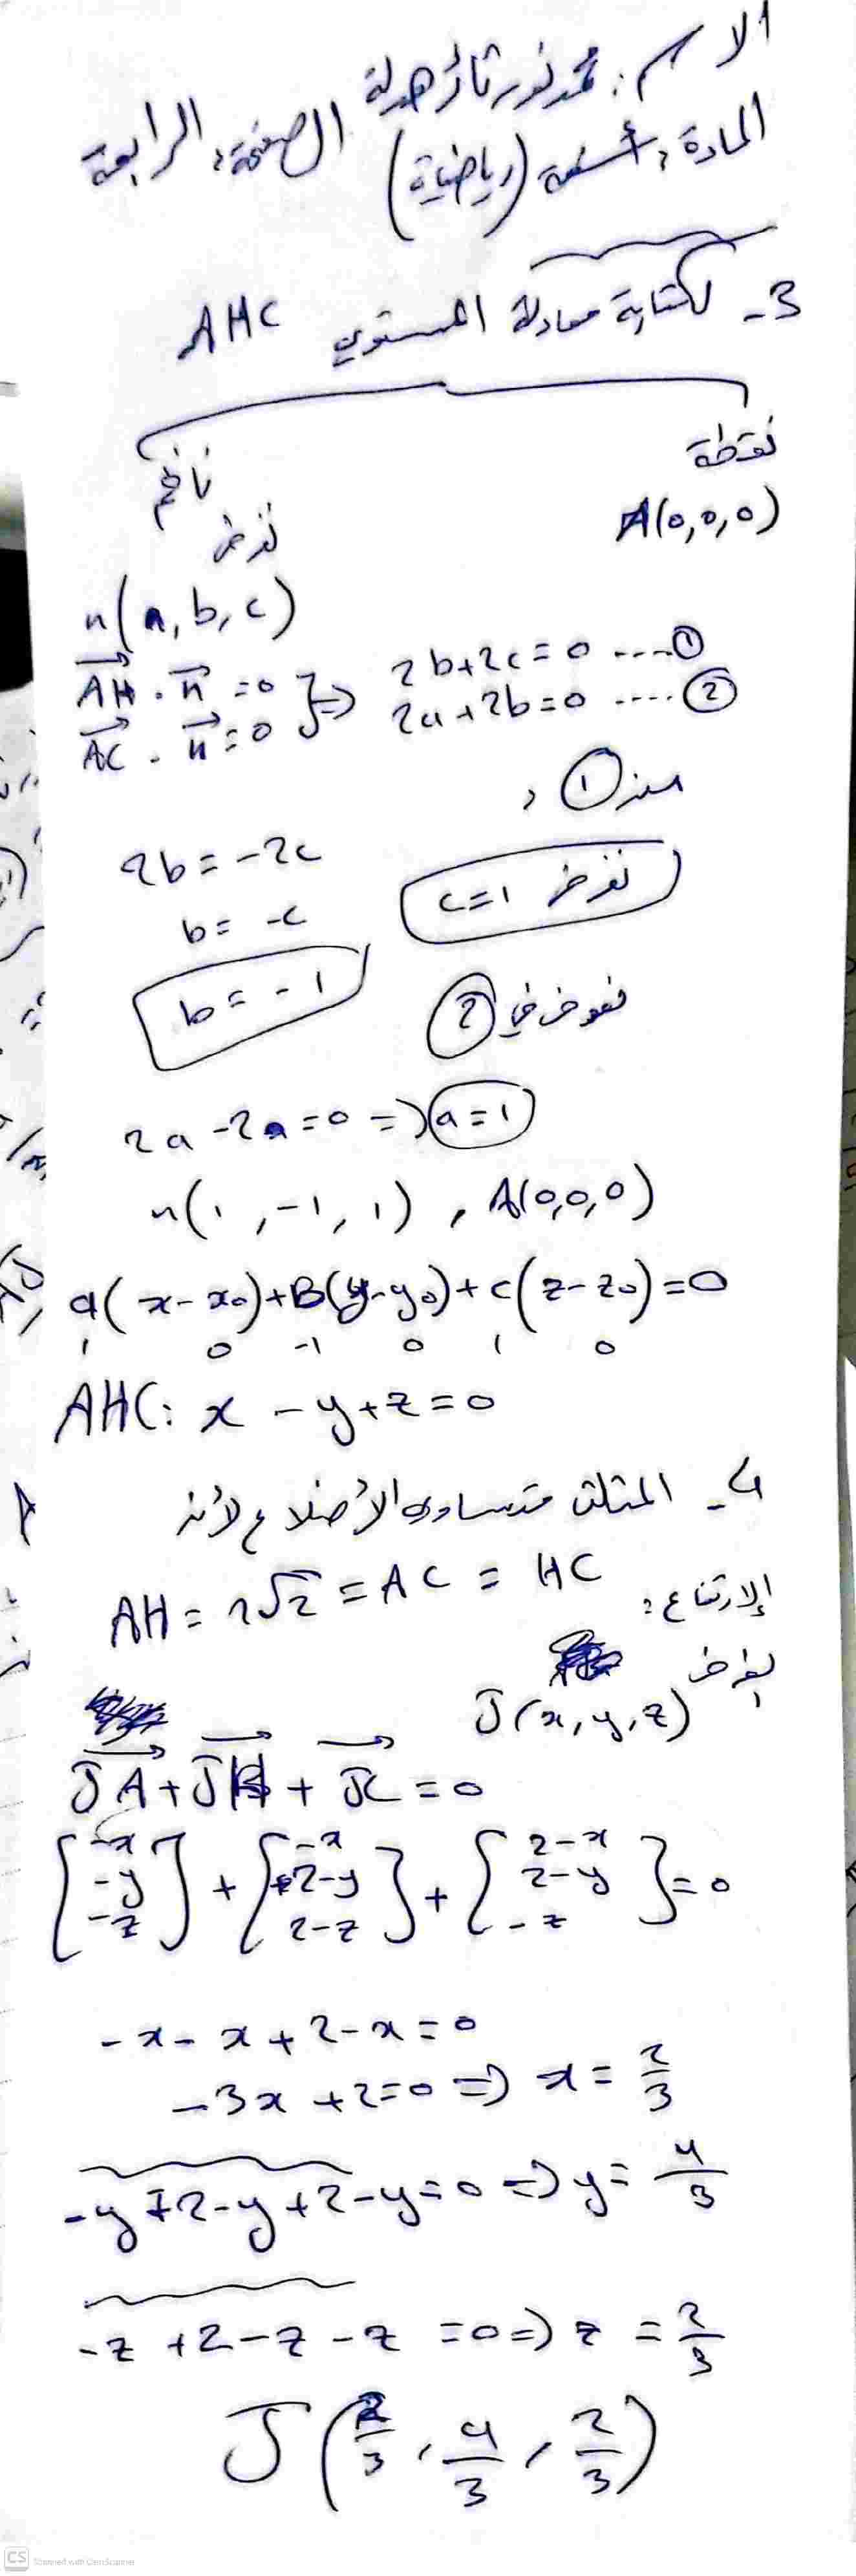 الاسم: محمد نور ثائر هدلة
المادة: أتمتة (رياضيات) الصفحة: الرابعة
3- لكتابة معادلة المستوي AHC
نقطة
A(0,0,0)
ناظم
نفرض
n(a,b,c)
AH . n = 0 } => 2b+2c=0 ....①
AC . n = 0 2a+2b=0 ....②
من ① :
2b = -2c
نفرض c=1
b = -c
b = -1
نعوض في ②
2a - 2 = 0 => a=1
n(1,-1,1) , A(0,0,0)
a(x-x0)+B(y-y0)+c(z-z0)=0
1 0 -1 0 1 0
AHC: x - y + z = 0
4- المثلث متساوي الأضلاع لأن
AH = 2√2 = AC = HC
الارتفاع:
بفرض
J(x,y,z)
JA + JH + JC = 0
[-x -y -z] + [-x +2-y 2-z] + [2-x 2-y -z] = 0
-x - x + 2 - x = 0
-3x + 2 = 0 => x = 2/3
-y + 2 - y + 2 - y = 0 => y = 4/3
-z + 2 - z - z = 0 => z = 2/3
J(2/3 , 4/3 , 2/3)
CS Scanned with CamScanner